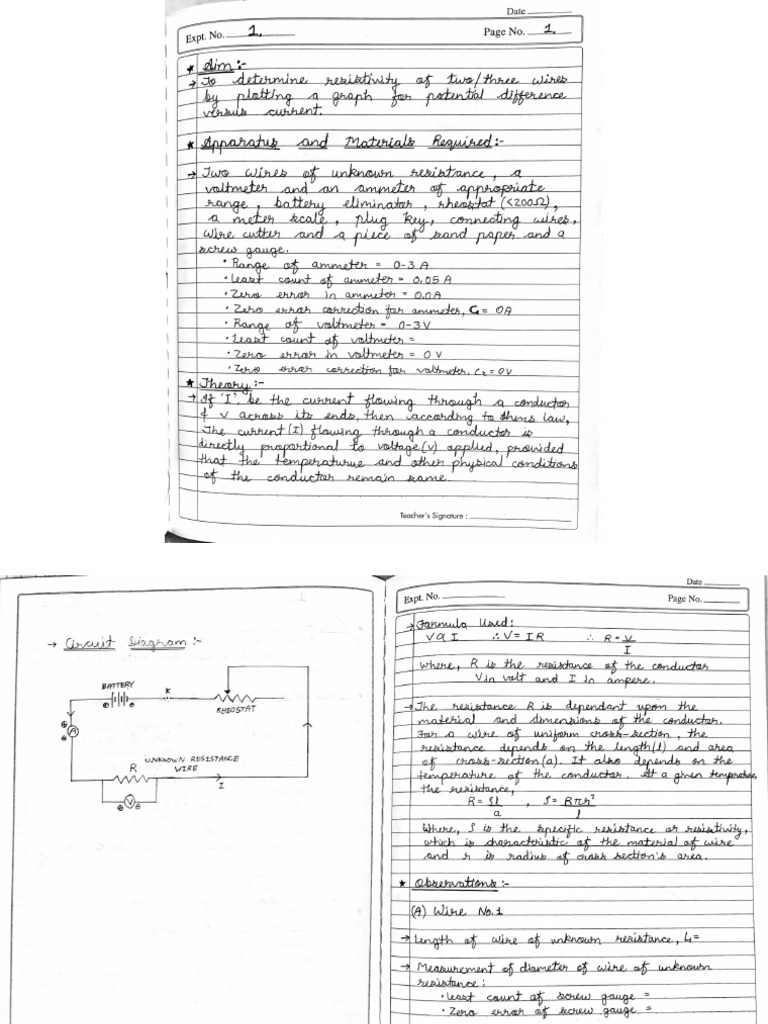 Date
Expt. No. 1.
Page No. 1.
★ Aim:-
→ To determine resistivity of two/three wires
by plotting a graph for potential difference
versus current.
★ Apparatus and Materials Required:-
→ Two wires of unknown resistance, a
voltmeter and an ammeter of appropriate
range, battery eliminator, rheostat (<200Ω),
a meter scale, plug key, connecting wires,
wire cutter and a piece of sand paper and a
screw gauge.
• Range of ammeter = 0-3 A
• Least count of ammeter = 0.05 A
• Zero error in ammeter = 0.0A
• Zero error correction for ammeter, C₁= 0A
• Range of voltmeter = 0-3V
• Least count of voltmeter =
• Zero error in voltmeter = 0 V
• Zero error correction for voltmeter, C₂ = 0V
★ Theory:-
→ If 'I' be the current flowing through a conductor
& V across its ends, then according to Ohms law,
The current (I) flowing through a conductor is
directly proportional to voltage (V) applied, provided
that the temperaturue and other physical conditions
of the conductor remain same.
Teacher's Signature :
→ Circuit Diagram:-
BATTERY
K
RHEOSTAT
A
UNKNOWN RESISTANCE
WIRE
R
I
V
Date
Expt. No.
Page No.
→ Formula Used:
V α I ∴ V = IR ∴ R = V/I
where, R is the resistance of the conductor
V in volt and I in ampere.
→ The resistance R is dependant upon the
material and dimensions of the conductor.
For a wire of uniform cross-section, the
resistance depends on the length (l) and area
of cross-section (a). It also depends on the
temperature of the conductor. At a given temperature,
the resistance,
R = ρl/a , ρ = Rπr²/l
Where, ρ is the specific resistance or resistivity,
which is characteristic of the material of wire
and r is radius of cross section's area.
★ Observations:-
(A) Wire No.1
→ Length of wire of unknown resistance, L=
→ Measurement of diameter of wire of unknown
resistance:
• Least count of screw gauge =
• Zero error of screw gauge =